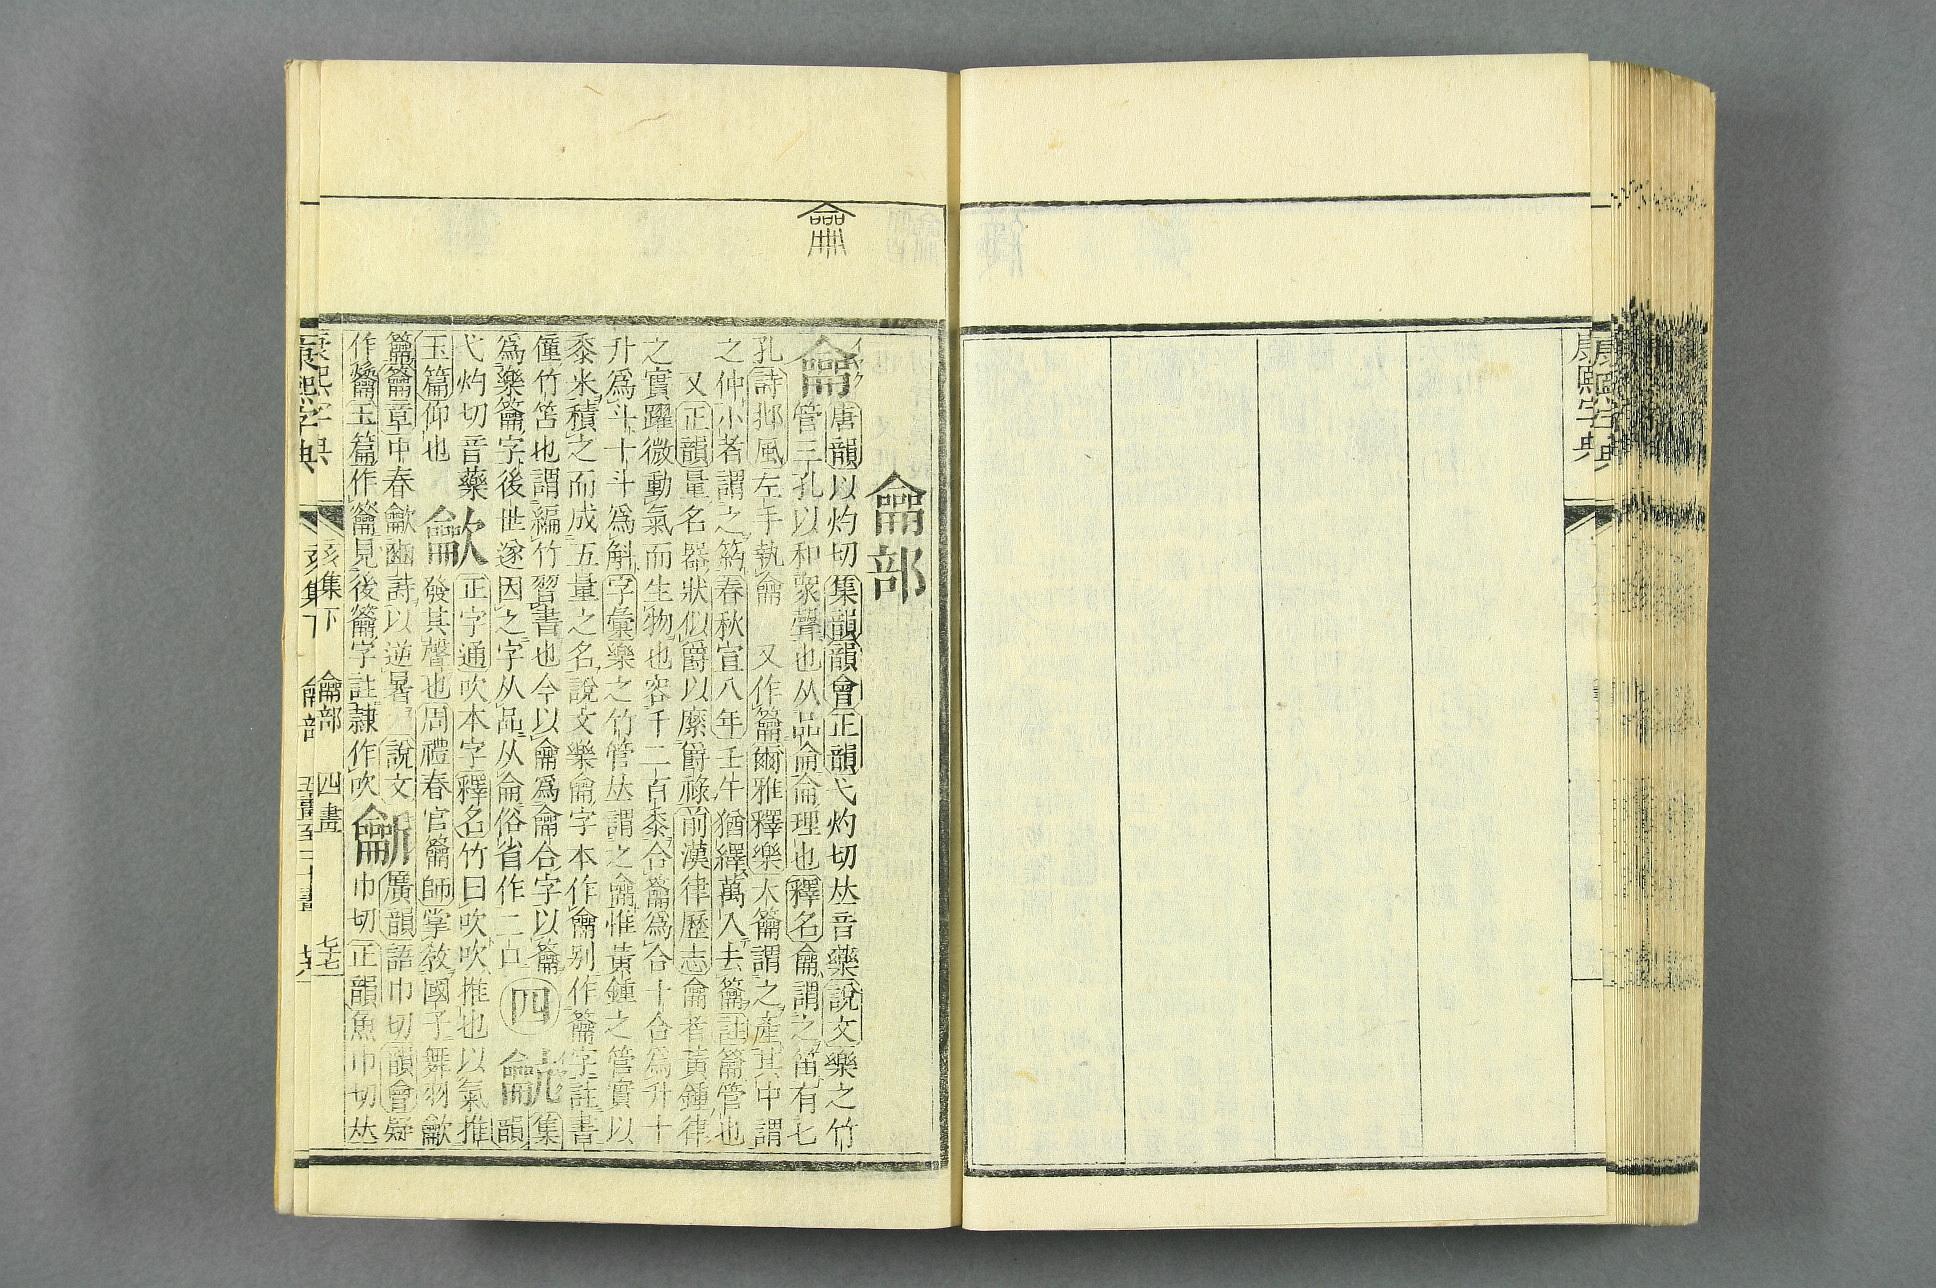 康熙字典
康熙字典
龠
龠部
龠
唐韻以灼切集韻韻會正韻弋灼切𠀤音藥說文樂之竹
管三孔以和衆聲也从品侖侖理也釋名龠謂之笛有七
孔詩邶風左手執龠 又作籥爾雅釋樂大籥謂之產其中謂
之仲小者謂之箹春秋宣八年壬午猶繹萬入去籥註籥管也
又正韻量名器狀似爵以縻爵祿前漢律歷志龠者黃鍾律
之實躍微動氣而生物也容千二百黍合籥爲合十合爲升十
升爲斗十斗爲斛字彙樂之竹管𠀤謂之龠惟黃鍾之管實以
黍米積之而成五量之名說文樂龠字本作龠别作籥字註書
僮竹笘也謂編竹習書也今以龠爲龠合字以籥
爲樂籥字後世遂因之字从品从侖俗省作二口 四
集
韻
弋灼切音藥
玉篇仰也
龡
正字通吹本字釋名竹曰吹吹推也以氣推
發其聲也周禮春官籥師掌敎國子舞羽龡
籥籥章中春龡豳詩以逆暑 說文
作龡玉篇作籥見後籥字註隷作吹
䶳
廣韻語巾切韻會疑
巾切正韻魚巾切𠀤
康熙字典 亥集下 龠部 四畫 七十七
康熙字典 亥集下 龠部